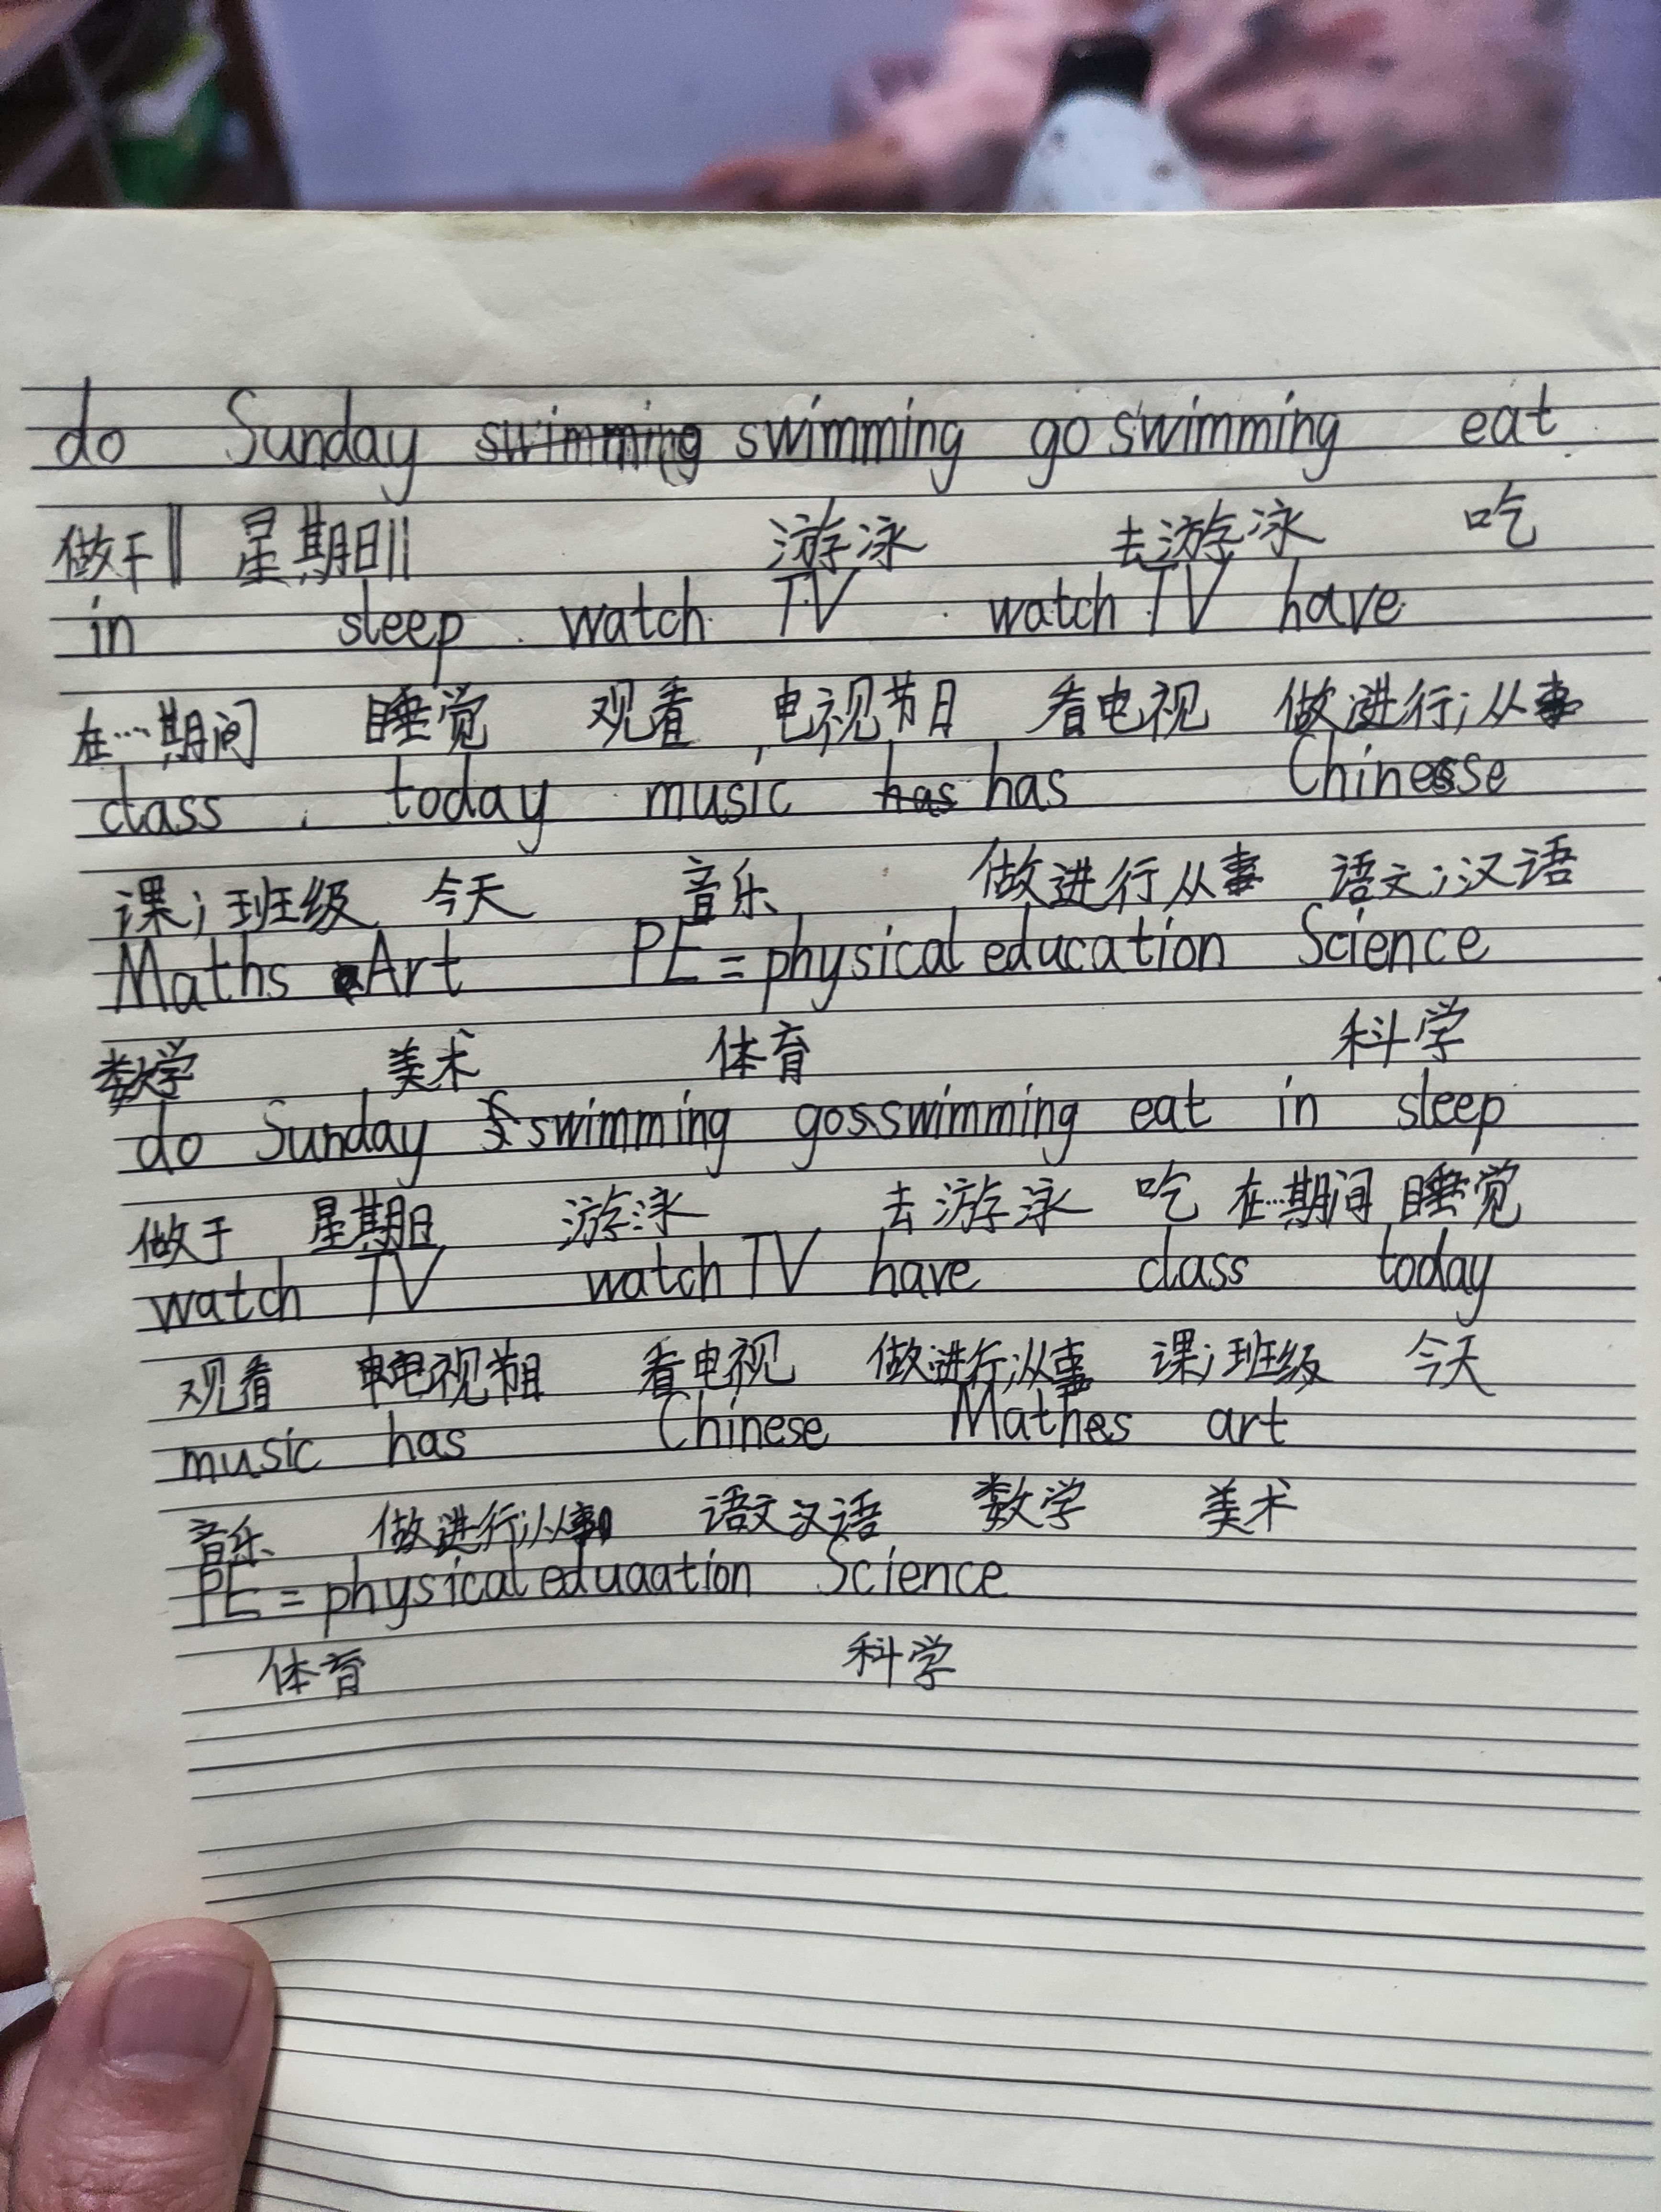 do Sunday swimming swimming go swimming eat
做干 星期日 游泳 去游泳 吃
in sleep watch TV watch TV have
在…期间 睡觉 观看 电视节目 看电视 做;进行;从事
class today music has has Chinesse
课;班级 今天 音乐 做进行从事 语文;汉语
Maths Art PE=physical education Science
数学 美术 体育 科学
do Sunday swimming go swimming eat in sleep
做于 星期日 游泳 去游泳 吃 在…期间 睡觉
watch TV watch TV have class today
观看 电视节目 看电视 做;进行;从事 课;班级 今天
music has Chinese Mathes art
音乐 做进行;从事 语文汉语 数学 美术
PE=physical eduaation Science
体育 科学